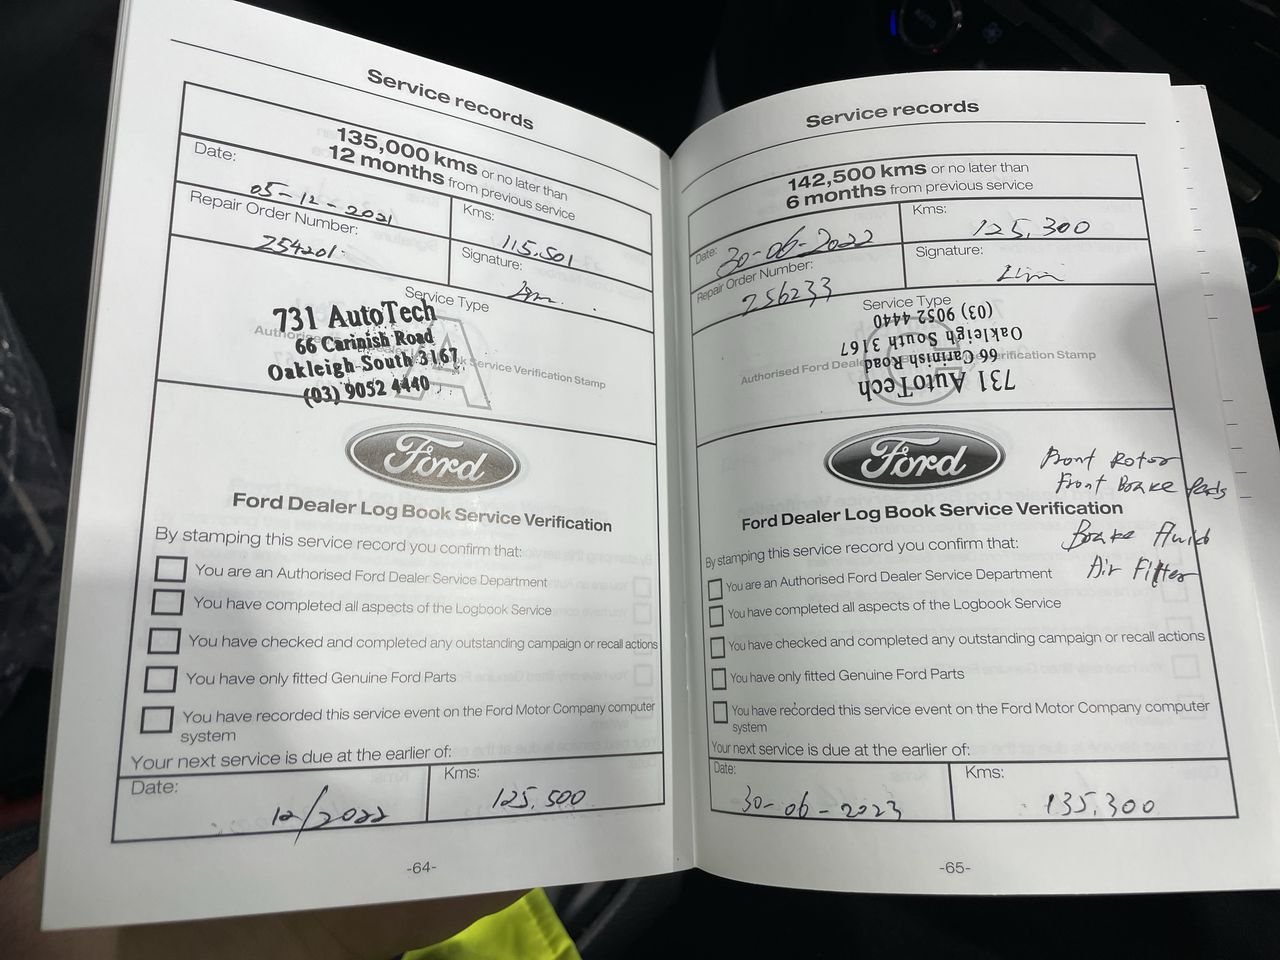 Service records
135,000 kms or no later than
12 months from previous service
Date:
05-12-2021
Kms:
115.501
Repair Order Number:
254201.
Signature:
Service Type
A
Authorised Ford Dealer Log Book Service Verification Stamp
731 AutoTech
66 Carinish Road
Oakleigh South 3167
(03) 9052 4440
Ford
Ford Dealer Log Book Service Verification
By stamping this service record you confirm that:
You are an Authorised Ford Dealer Service Department
You have completed all aspects of the Logbook Service
You have checked and completed any outstanding campaign or recall actions
You have only fitted Genuine Ford Parts
You have recorded this service event on the Ford Motor Company computer
system
Your next service is due at the earlier of:
Date:
12/2022
Kms:
125.500
-64-
Service records
142,500 kms or no later than
6 months from previous service
Date: 30-06-2022
Kms:
125,300
Repair Order Number:
256233
Signature:
Service Type
Authorised Ford Dealer Log Book Service Verification Stamp
731 AutoTech
66 Carinish Road
Oakleigh South 3167
(03) 9052 4440
Ford
Front Rotor
Front Brake Pads
Brake Fluid
Air Filter
Ford Dealer Log Book Service Verification
By stamping this service record you confirm that:
You are an Authorised Ford Dealer Service Department
You have completed all aspects of the Logbook Service
You have checked and completed any outstanding campaign or recall actions
You have only fitted Genuine Ford Parts
You have recorded this service event on the Ford Motor Company computer
system
Your next service is due at the earlier of:
Date:
30-06-2023
Kms:
135,300
-65-